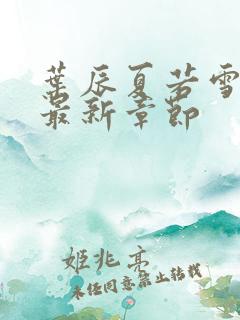 葉辰夏若雪
最新章節
姬兆亮
未经同意禁止转载